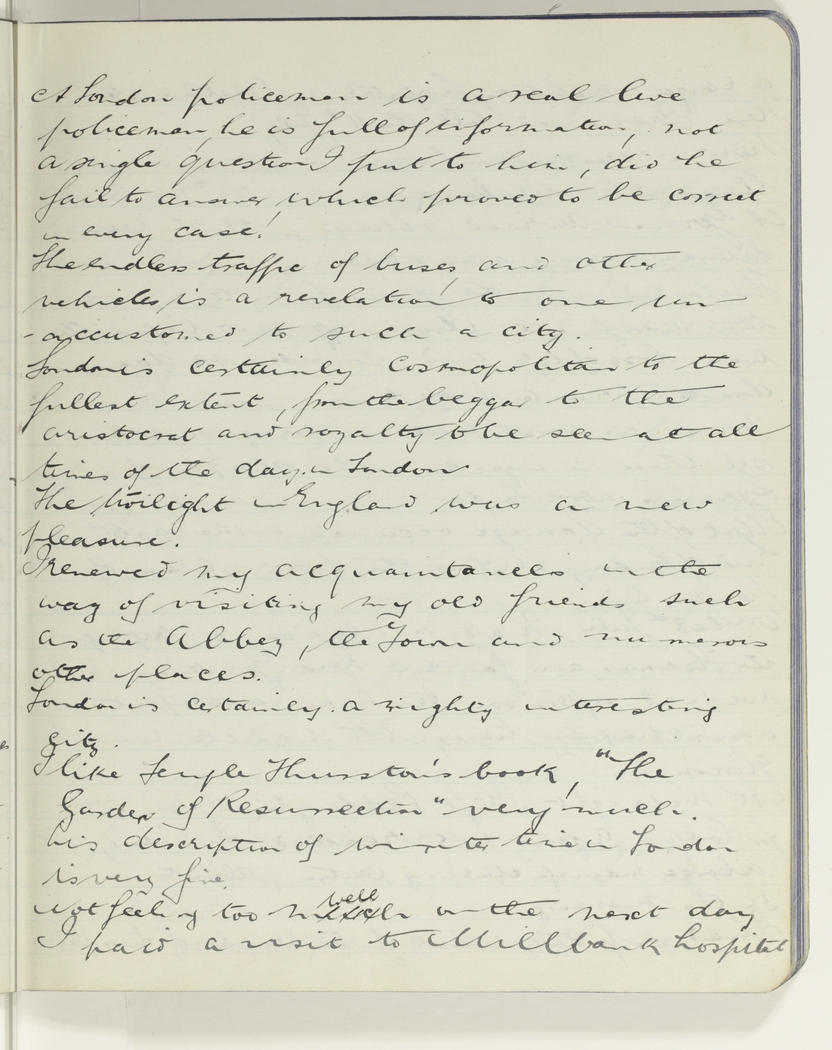 A London policeman is a real live
policeman, he is full of information, not
a single question I put to him, did he
fail to answer, which proved to be correct
in every case!
The endless traffic of buses, and other
vehicles is a revelation to one un-
-accustomed to such a city.
London is certainly Cosmopolitan to the
fullest extent, from the beggar to the
aristocrat and royalty to be seen at all
times of the day in London
The twilight in England was a new
pleasure.
I renewed my acquaintances in the
way of visiting my old friends such
as the Abbey, the Tower and numerous
other places.
London is certainly a mighty interesting
city.
I like Temple Thurston's book, "The
Garden of Resurrection" very much.
his description of winter time in London
is very fine.
Not feeling too well on the next day
I paid a visit to Millbank hospital